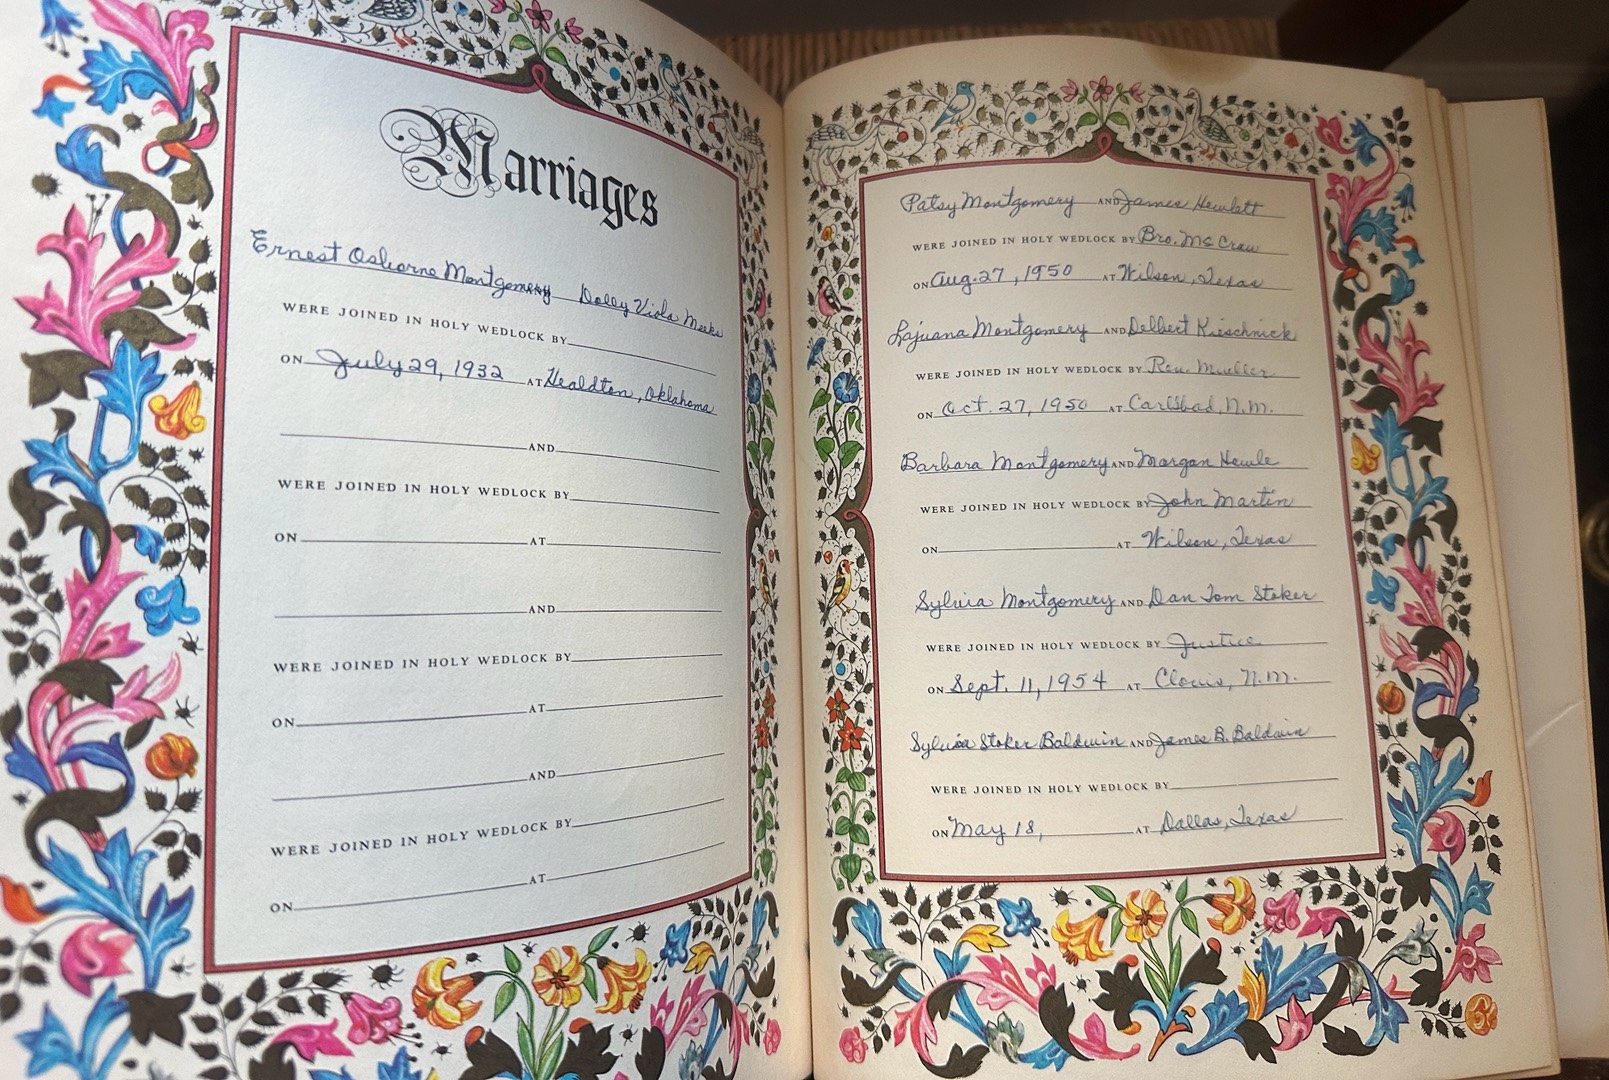 Marriages
Ernest Osborne Montgomery AND Dolly Viola Meeks
WERE JOINED IN HOLY WEDLOCK BY
ON July 29, 1932 AT Healdton, Oklahoma
AND
WERE JOINED IN HOLY WEDLOCK BY
ON AT
AND
WERE JOINED IN HOLY WEDLOCK BY
ON AT
AND
WERE JOINED IN HOLY WEDLOCK BY
ON AT
Patsy Montgomery AND James Hewlett
WERE JOINED IN HOLY WEDLOCK BY Bro. McCraw
ON Aug. 27, 1950 AT Wilson, Texas
Lajuana Montgomery AND Delbert Kieschnick
WERE JOINED IN HOLY WEDLOCK BY Rev. Mueller
ON Oct. 27, 1950 AT Carlsbad, N.M.
Barbara Montgomery AND Morgan Hewle
WERE JOINED IN HOLY WEDLOCK BY John Martin
ON AT Wilson, Texas
Sylvia Montgomery AND Dan Tom Stoker
WERE JOINED IN HOLY WEDLOCK BY Justice
ON Sept. 11, 1954 AT Clovis, N.M.
Sylvia Stoker Baldwin AND James B. Baldwin
WERE JOINED IN HOLY WEDLOCK BY
ON May 18, AT Dallas, Texas